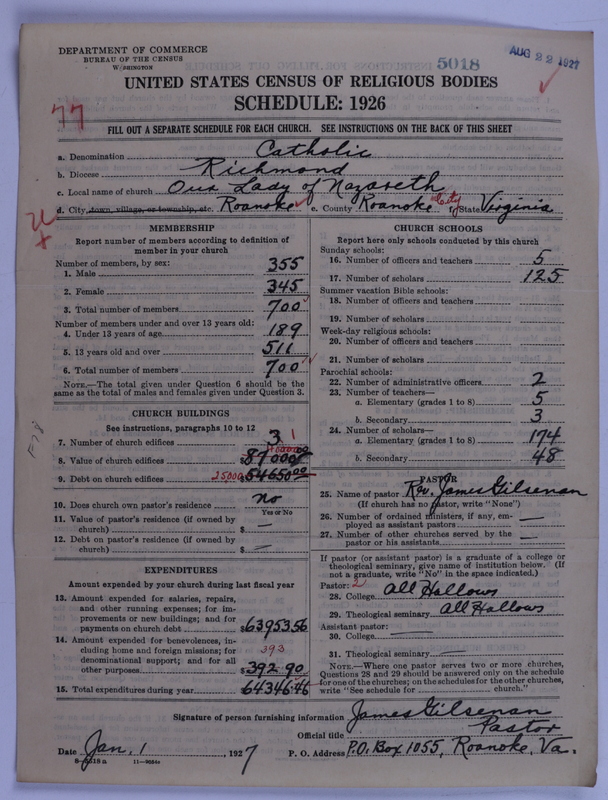 DEPARTMENT OF COMMERCE
BUREAU OF THE CENSUS
WASHINGTON
5018
AUG 22 1927
UNITED STATES CENSUS OF RELIGIOUS BODIES
SCHEDULE: 1926
77
FILL OUT A SEPARATE SCHEDULE FOR EACH CHURCH. SEE INSTRUCTIONS ON THE BACK OF THIS SHEET
a. Denomination Catholic
b. Diocese Richmond
c. Local name of church Our Lady of Nazareth
d. City, town, village, or township, etc. Roanoke e. County Roanoke City f. State Virginia
MEMBERSHIP
Report number of members according to definition of
member in your church
Number of members, by sex:
1. Male 355
2. Female 345
3. Total number of members 700
Number of members under and over 13 years old:
4. Under 13 years of age 189
5. 13 years old and over 511
6. Total number of members 700
NOTE.—The total given under Question 6 should be the
same as the total of males and females given under Question 3.
CHURCH BUILDINGS
See instructions, paragraphs 10 to 12
7. Number of church edifices 3 1
8. Value of church edifices $87000
9. Debt on church edifices 25,000 $54650.00
10. Does church own pastor's residence no
Yes or No
11. Value of pastor's residence (if owned by
church) $ —
12. Debt on pastor's residence (if owned by
church) $ —
EXPENDITURES
Amount expended by your church during last fiscal year
13. Amount expended for salaries, repairs,
and other running expenses; for im-
provements or new buildings; and for
payments on church debt $63953.56
14. Amount expended for benevolences, in-
cluding home and foreign missions; for
denominational support; and for all
other purposes 393 $392.90
15. Total expenditures during year $64346.46
CHURCH SCHOOLS
Report here only schools conducted by this church
Sunday schools:
16. Number of officers and teachers 5
17. Number of scholars 125
Summer vacation Bible schools:
18. Number of officers and teachers
19. Number of scholars
Week-day religious schools:
20. Number of officers and teachers
21. Number of scholars
Parochial schools:
22. Number of administrative officers 2
23. Number of teachers—
a. Elementary (grades 1 to 8) 5
b. Secondary 3
24. Number of scholars—
a. Elementary (grades 1 to 8) 174
b. Secondary 48
PASTOR
25. Name of pastor Rev. James Gilsenan
(If church has no pastor, write "None")
26. Number of ordained ministers, if any, em-
ployed as assistant pastors —
27. Number of other churches served by the
pastor or his assistants —
If pastor (or assistant pastor) is a graduate of a college or
theological seminary, give name of institution below. (If
not a graduate, write "No" in the space indicated.)
Pastor: 2
28. College All Hallows
29. Theological seminary All Hallows
Assistant pastor:
30. College —
31. Theological seminary —
NOTE.—Where one pastor serves two or more churches,
Questions 28 and 29 should be answered only on the schedule
for one of the churches; on the schedules for the other churches,
write "See schedule for church."
Signature of person furnishing information James Gilsenan
Official title Pastor
Date Jan. 1 1927 P. O. Address P.O. Box 1055, Roanoke, Va.